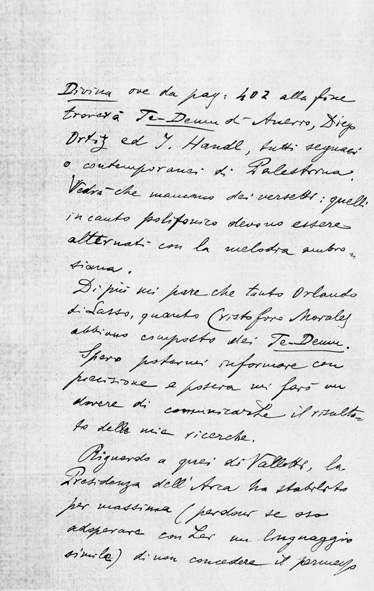 Divina ove da pag: 402 alla fine
troverà Te-Deum di Anerio, Diego
Ortiz ed J. Handl, tutti seguaci
o contemporanei di Palestrina.
Vedrà che mancano dei versetti: quelli
in canto polifonico devono essere
alternati con la melodia ambro-
siana.
Di più mi pare che tanto Orlando
di Lasso, quanto Cristoforo Morales
abbiano composto dei Te-Deum.
Spero potermi informare con
precisione e poscia mi farò un
dovere di comunicarLe il risulta-
to delle mie ricerche.
Riguardo a quei di Vallotti, la
Presidenza dell'Arca ha stabilito
per massima (perdoni se oso
adoperare con Lei un linguaggio
simile) di non concedere il permesso